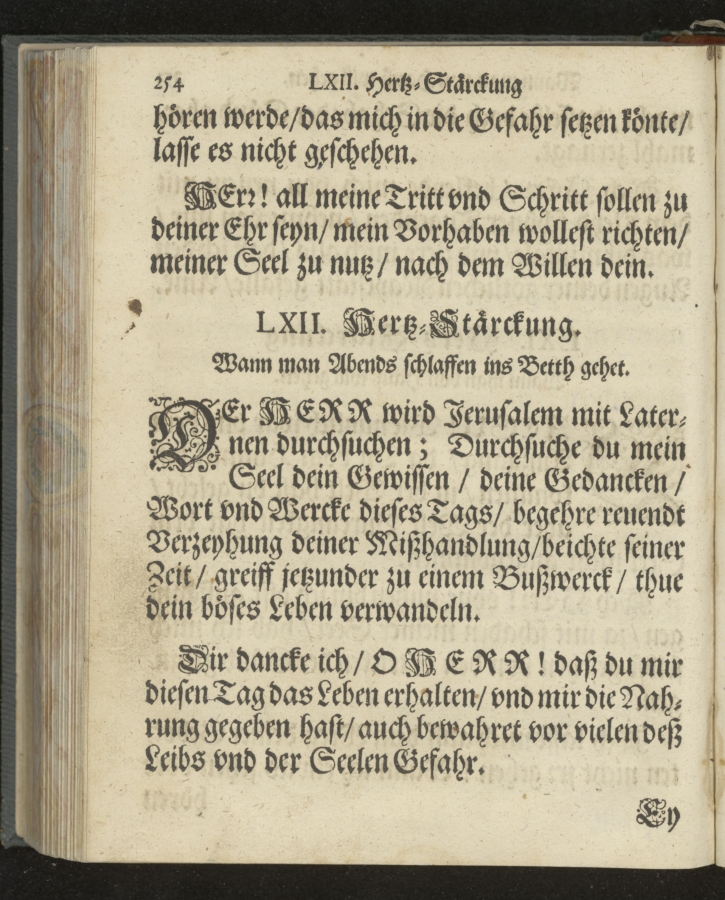 254 LXII. Hertz-Stärckung
hören werde/das mich in die Gefahr setzen könte/
lasse es nicht geschehen.
HErr! all meine Tritt vnd Schritt sollen zu
deiner Ehr seyn/ mein Vorhaben wollest richten/
meiner Seel zu nutz/ nach dem Willen dein.
LXII. Hertz-Stärckung.
Wann man Abends schlaffen ins Betth gehet.
DEr HERR wird Jerusalem mit Later-
nen durchsuchen; Durchsuche du mein
Seel dein Gewissen / deine Gedancken /
Wort vnd Wercke dieses Tags/ begehre reuendt
Verzeyhung deiner Mißhandlung/beichte seiner
Zeit/ greiff jetzunder zu einem Bußwerck/ thue
dein böses Leben verwandeln.
Dir dancke ich/ O HERR! daß du mir
diesen Tag das Leben erhalten/ vnd mir die Nah-
rung gegeben hast/ auch bewahret vor vielen deß
Leibs vnd der Seelen Gefahr.
Ey